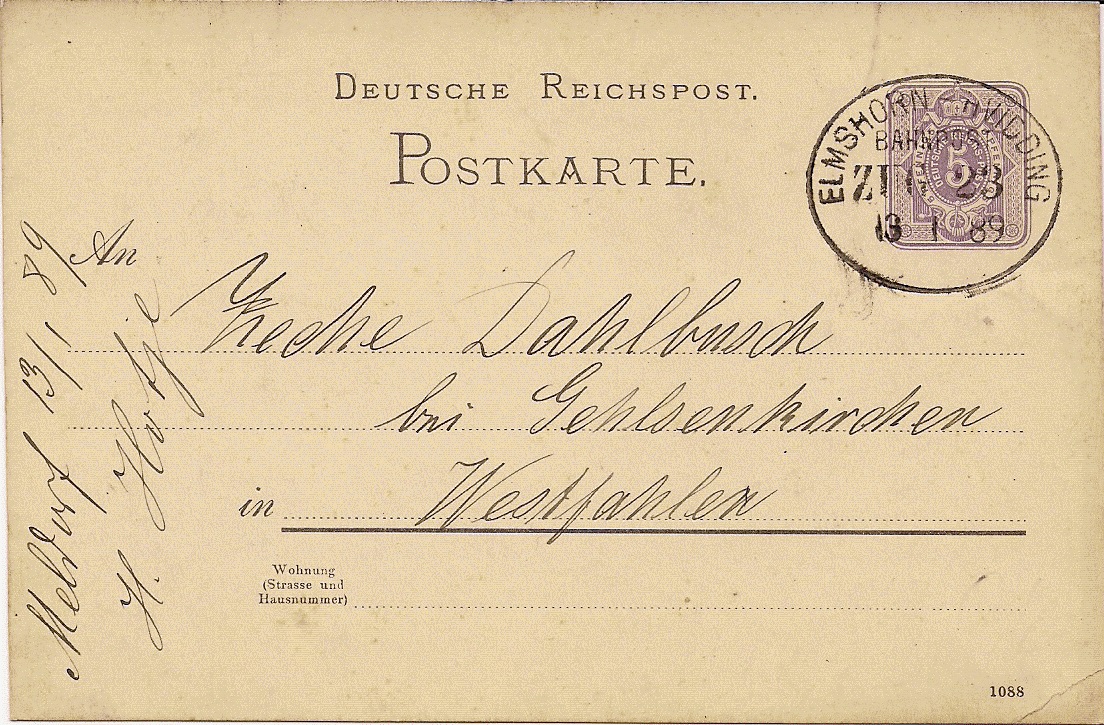 DEUTSCHE REICHSPOST.
POSTKARTE.
ELMSHORN HVIDDING
BAHNPOST
ZUG 23
13 1 89
5
An
Zeche Dahlbusch
bei Gehlsenkirchen
in Westfahlen
Wohnung
(Strasse und
Hausnummer)
1088
Meldorf 13/1 89
H. Hotje